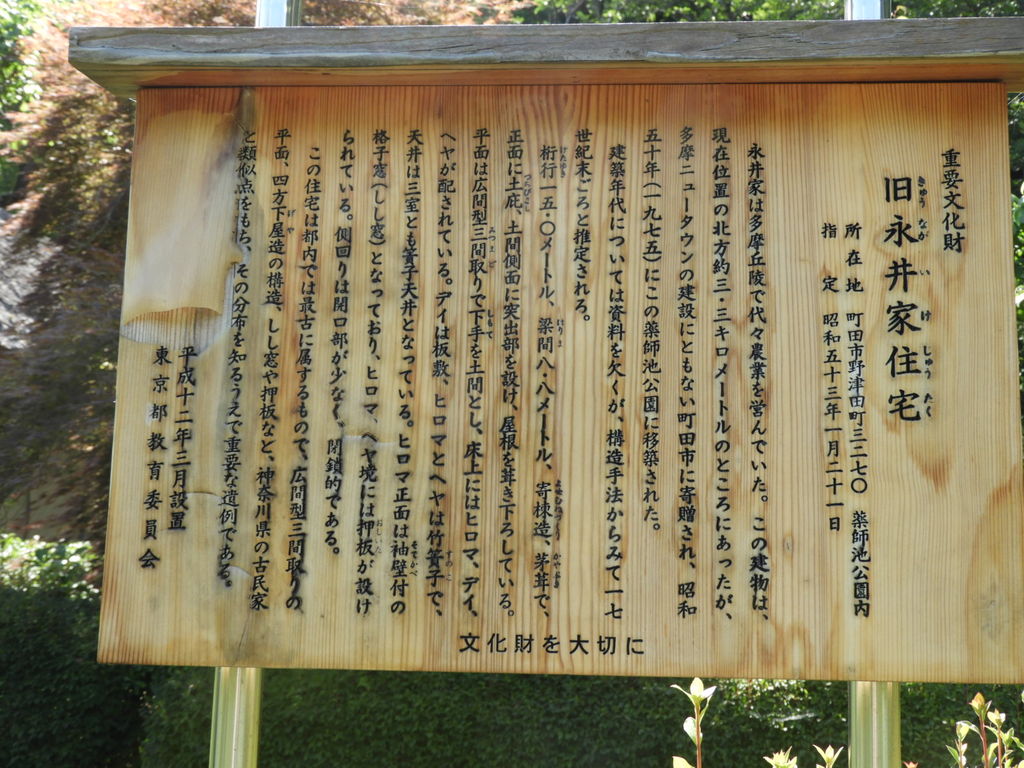 重要文化財
旧永井家住宅
きゅう なが い け じゅう たく
所在地 町田市野津田町三二七〇 薬師池公園内
指定 昭和五十三年一月二十一日
永井家は多摩丘陵で代々農業を営んでいた。この建物は、
現在位置の北方約三・三キロメートルのところにあったが、
多摩ニュータウンの建設にともない町田市に寄贈され、昭和
五十年(一九七五)にこの薬師池公園に移築された。
建築年代については資料を欠くが、構造手法からみて一七
世紀末ごろと推定される。
桁行一五・〇メートル、梁間八・八メートル、寄棟造、茅葺で、
正面に土庇、土間側面に突出部を設け、屋根を葺き下ろしている。
平面は広間型三間取りで下手を土間とし、床上にはヒロマ、デイ、
ヘヤが配されている。デイは板敷、ヒロマとヘヤは竹簀子で、
天井は三室とも簀子天井となっている。ヒロマ正面は袖壁付の
格子窓(しし窓)となっており、ヒロマ、ヘヤ境には押板が設け
られている。側回りは開口部が少なく、閉鎖的である。
この住宅は都内では最古に属するもので、広間型三間取りの
平面、四方下屋造の構造、しし窓や押板など、神奈川県の古民家
と類似点をもち、その分布を知るうえで重要な遺例である。
平成十二年三月設置
東京都教育委員会
文化財を大切に